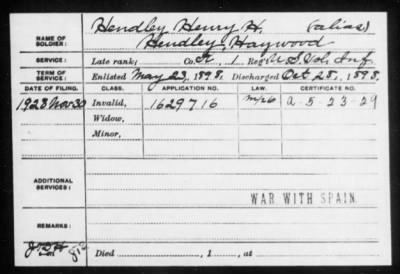 NAME OF SOLDIER: Hendley Henry H. (alias)
Hendley, Haywood
SERVICE: Late rank, Co. 1 Reg't U.S. Vol. Inf.
TERM OF SERVICE: Enlisted May 23, 1898, Discharged Oct 28, 1898.
DATE OF FILING. CLASS. APPLICATION NO. LAW. CERTIFICATE NO.
1923 Nov 30 Invalid, 1629716 a-5-23-29
Widow,
Minor,
ADDITIONAL SERVICES:
WAR WITH SPAIN.
REMARKS:
Died , 1 , at